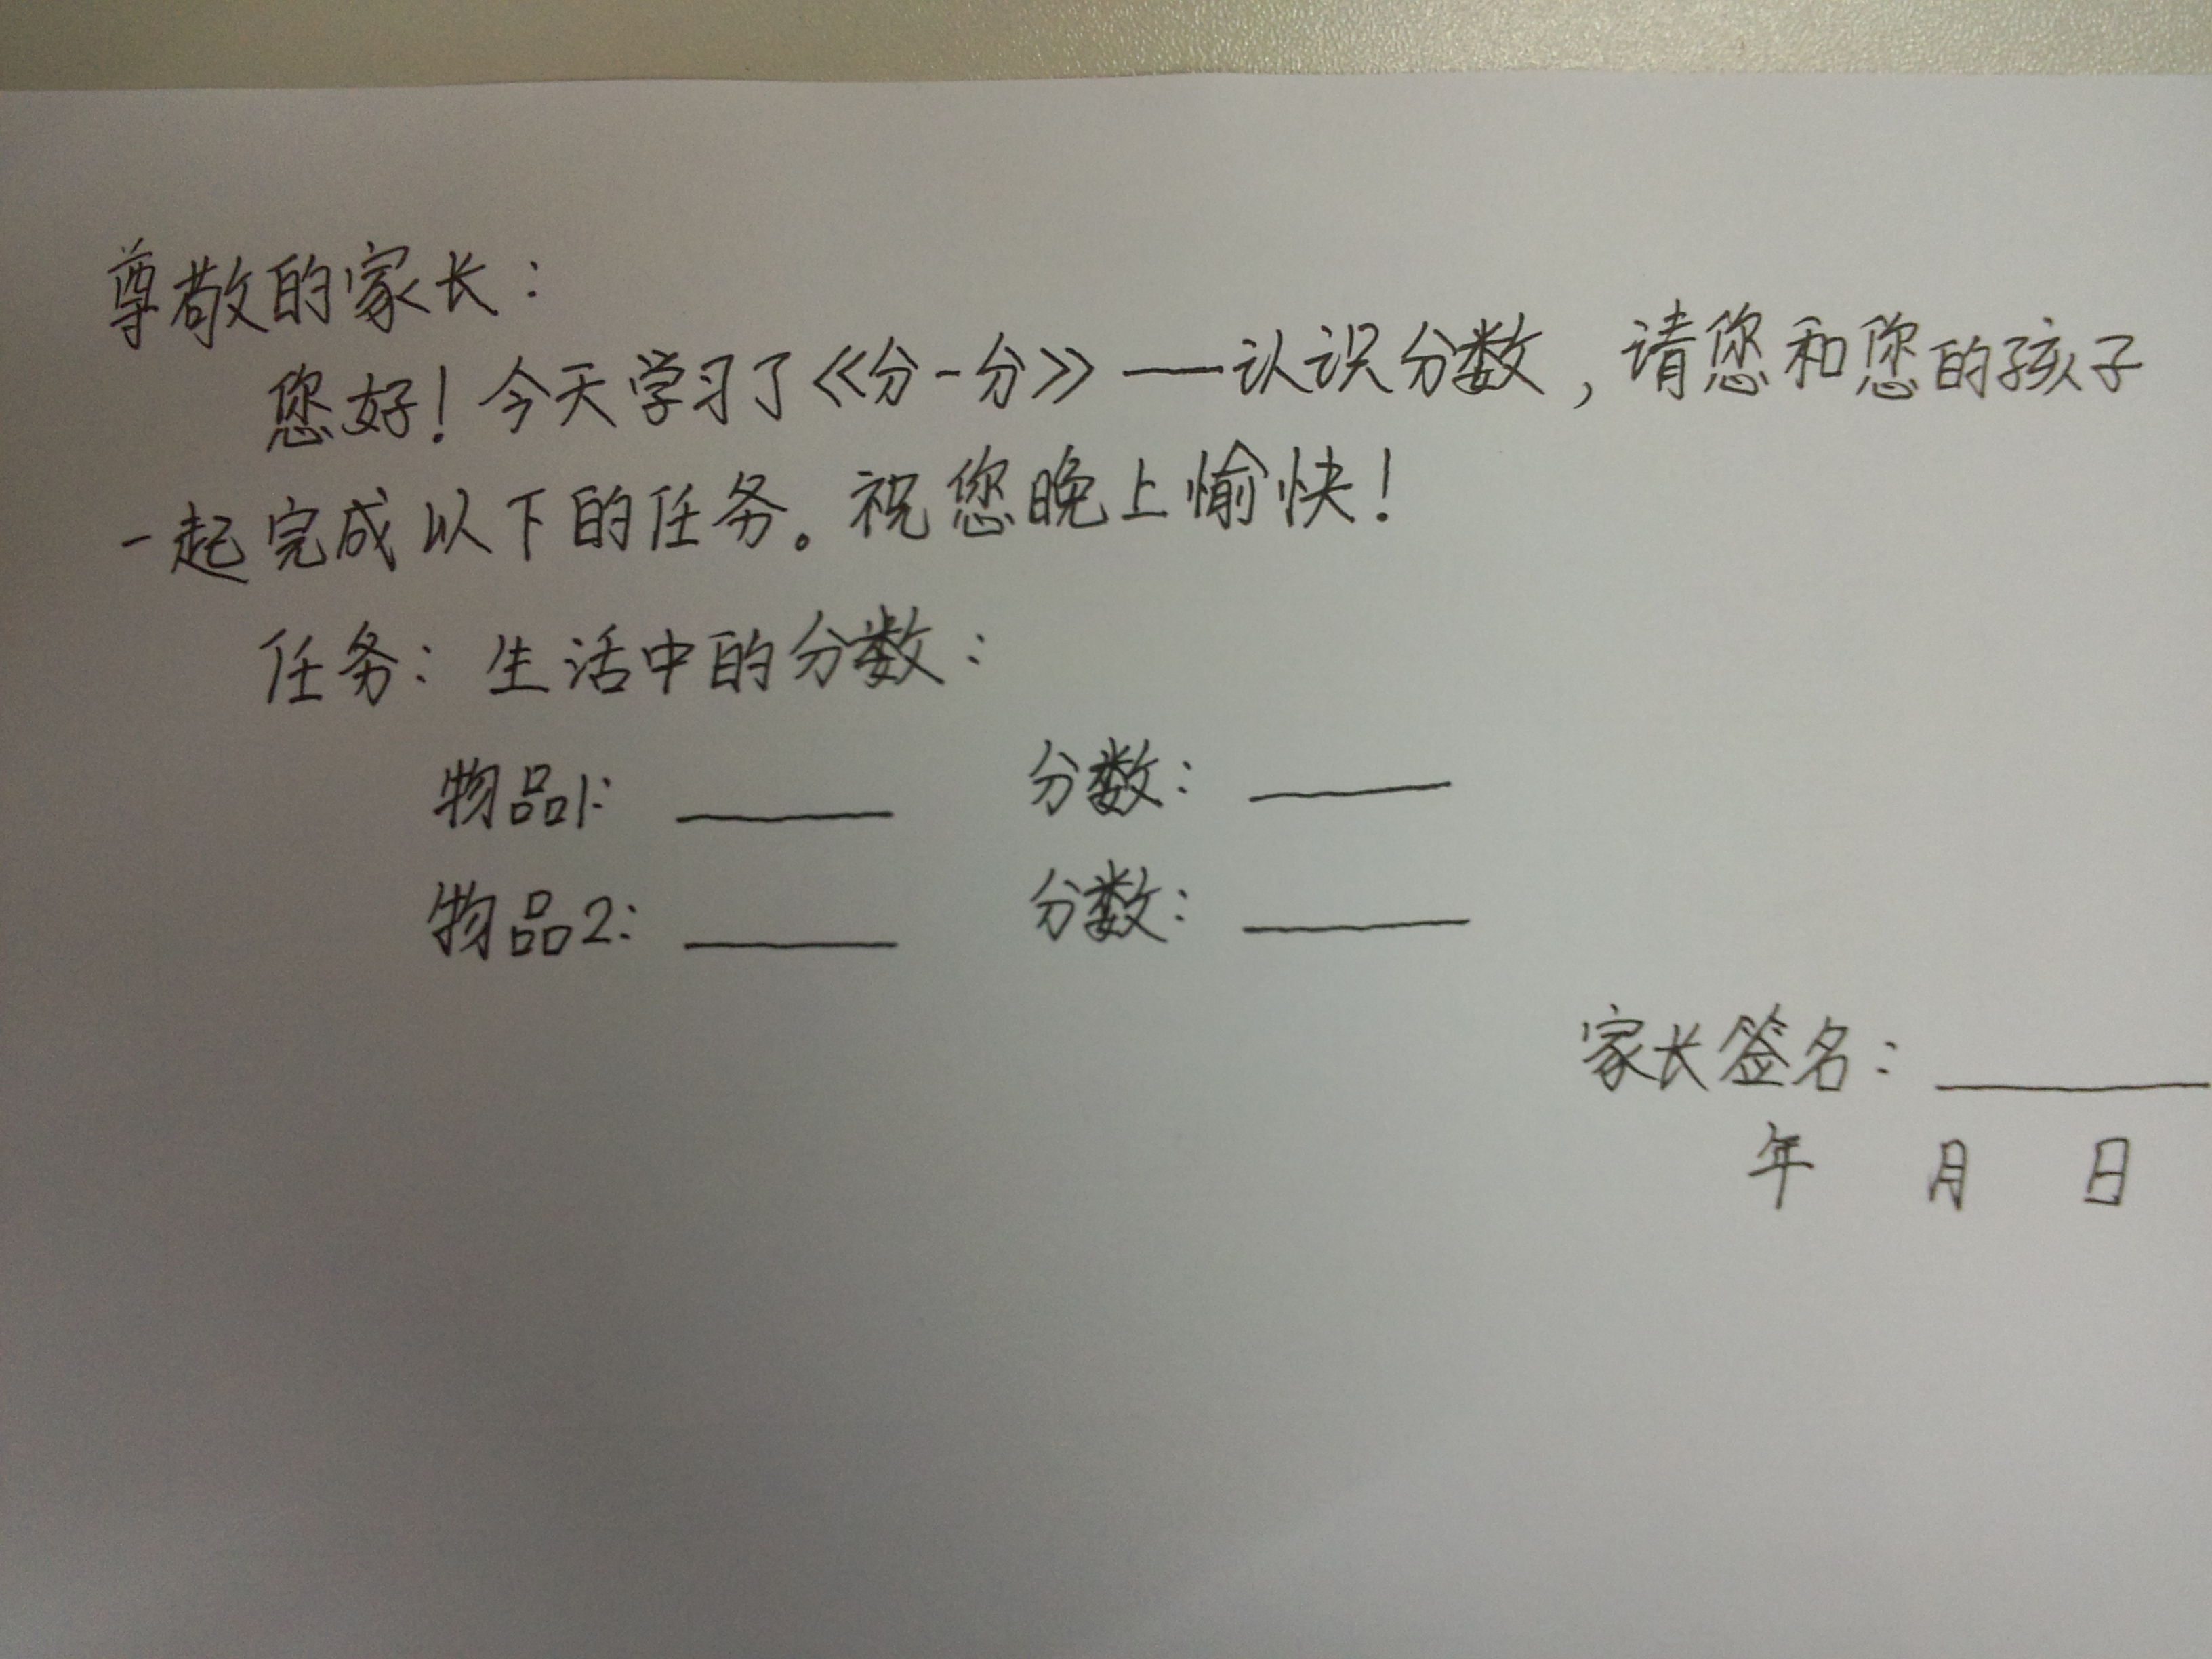 尊敬的家长：
您好！今天学习了《分一分》——认识分数，请您和您的孩子
一起完成以下的任务。祝您晚上愉快！
任务：生活中的分数：
物品1：______ 分数：______
物品2：______ 分数：______
家长签名：______
年 月 日